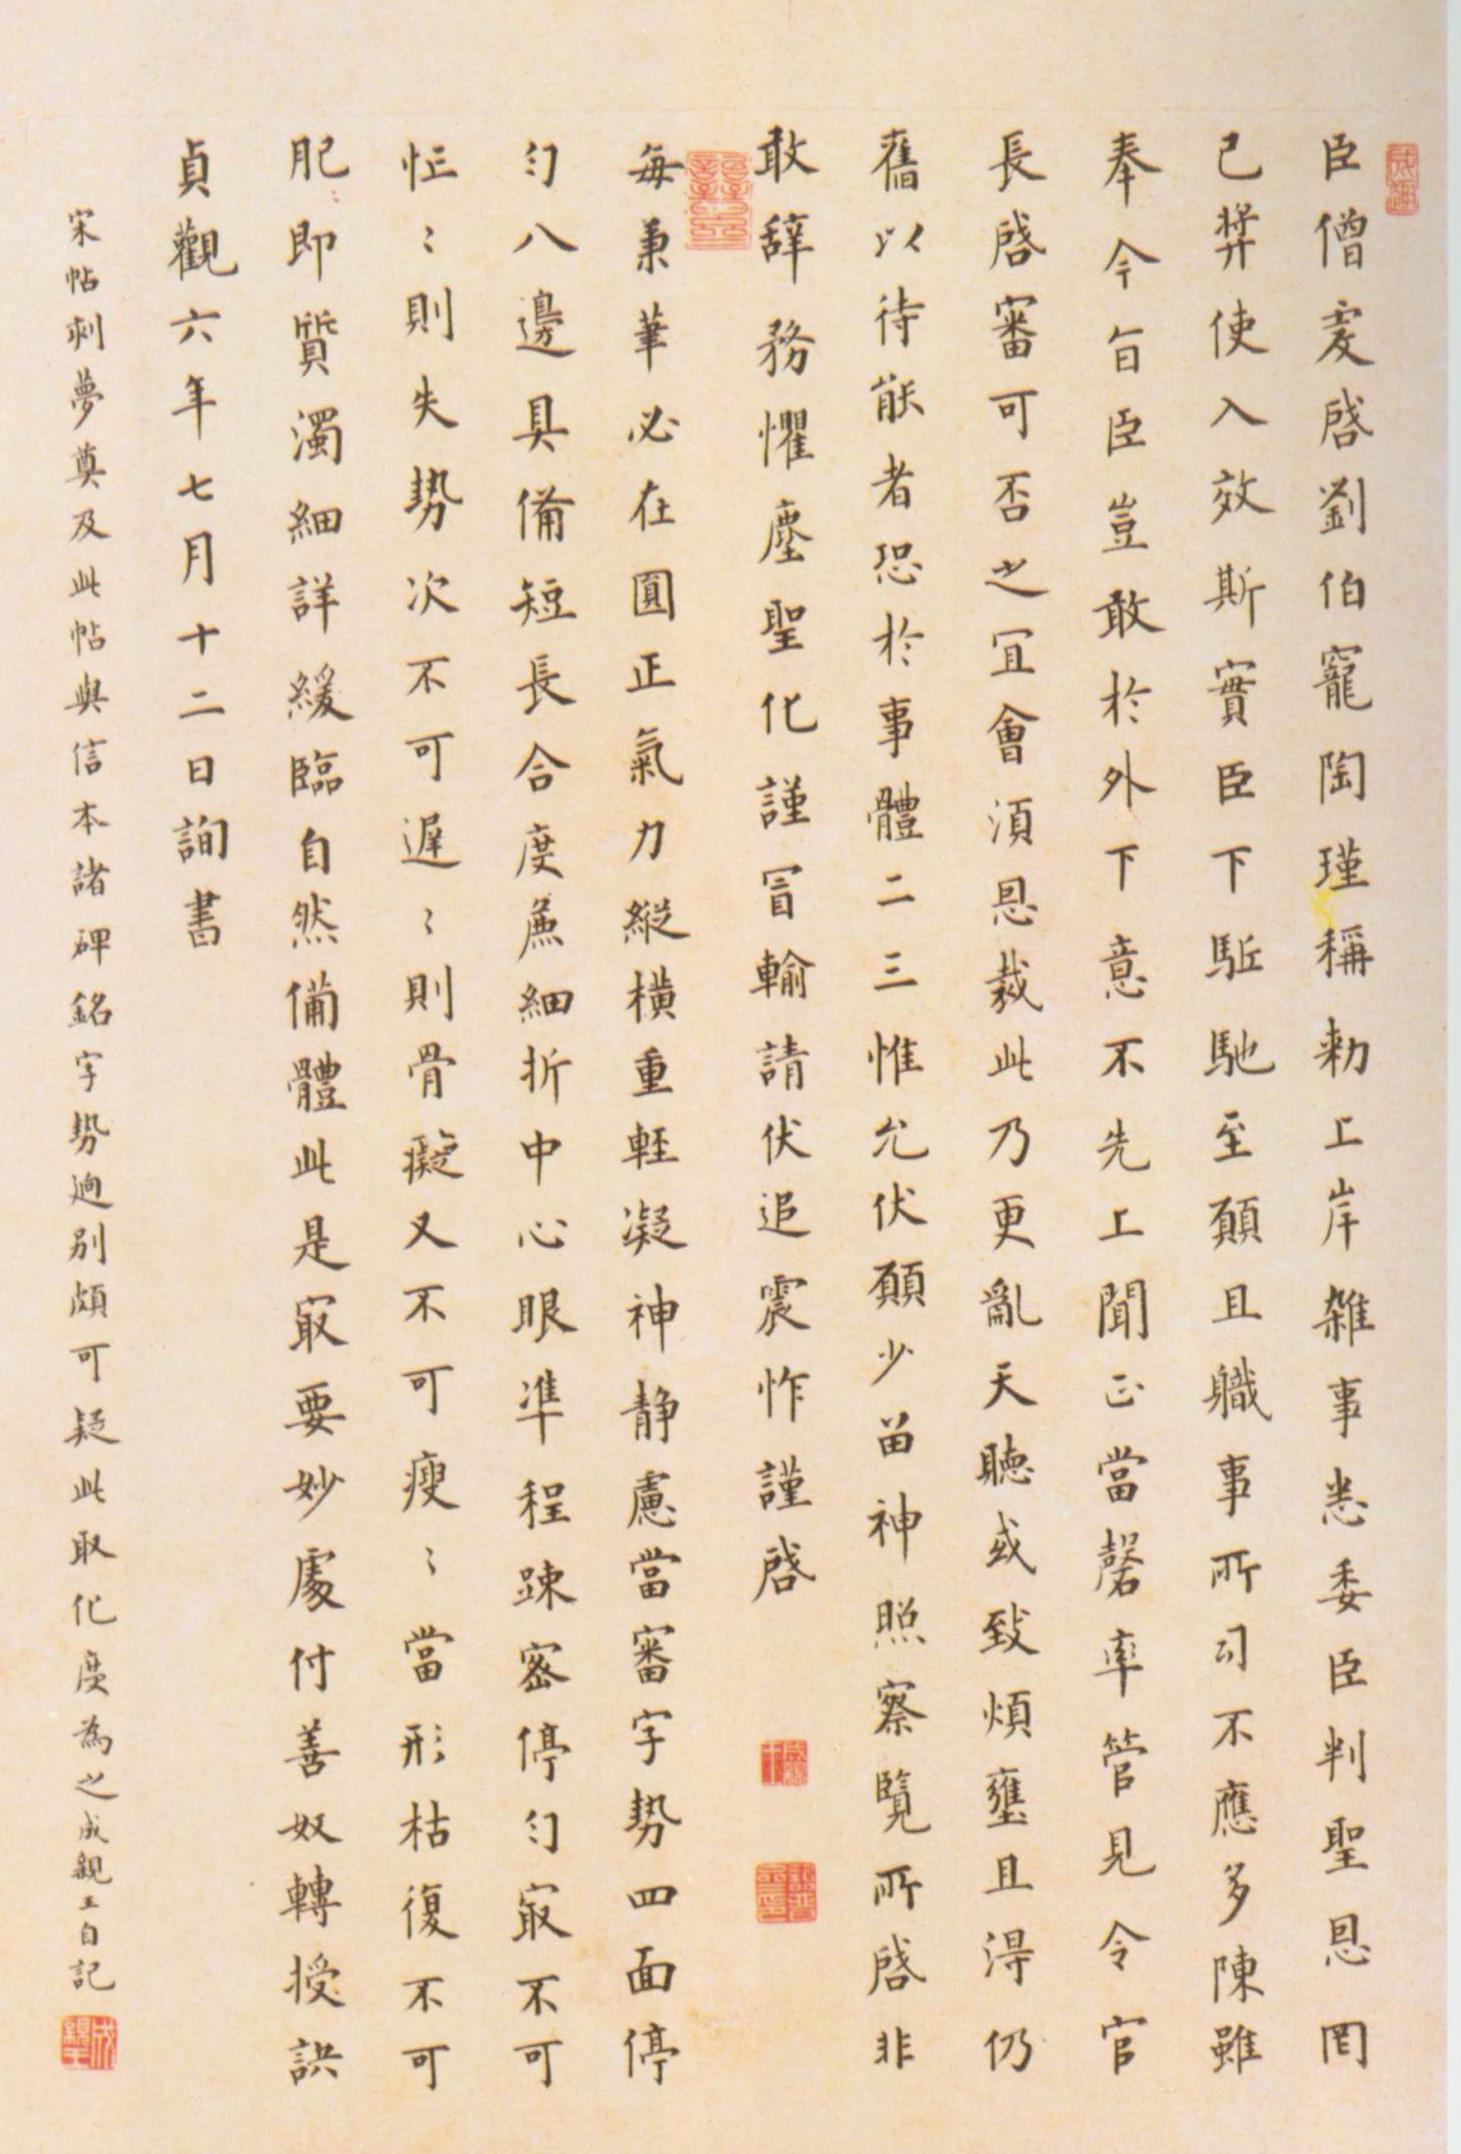 臣僧䖍啓劉伯寵陶瑾稱勑上岸雜事悉委臣判聖恩罔
已弉使入效斯實臣下駈馳至願且職事所司不應多陳雖
奉今旨臣豈敢於外下意不先上聞正當罄率管見令官
長啓審可否之宜會湏恩裁此乃更亂天聽或致煩壅且淂仍
舊以待能者恐於事體二三惟允伏願少留神照察覽所啓非
敢辞務懼塵聖化謹冒輸請伏追震怍謹啓
每秉筆必在圓正氣力縱橫重輕凝神静慮當審字勢四面停
匀八邊具備短長合度麄細折中心眼準程踈密停匀㝡不可
忙〻則失勢次不可遲〻則骨癡又不可瘦〻當形枯復不可
肥即質濁細詳緩臨自然備體此是㝡要妙處付善奴轉授訣
貞觀六年七月十二日詢書
宋帖刺夢奠及此帖與信本諸碑銘字勢逈別頗可疑此取化度為之成親王自記